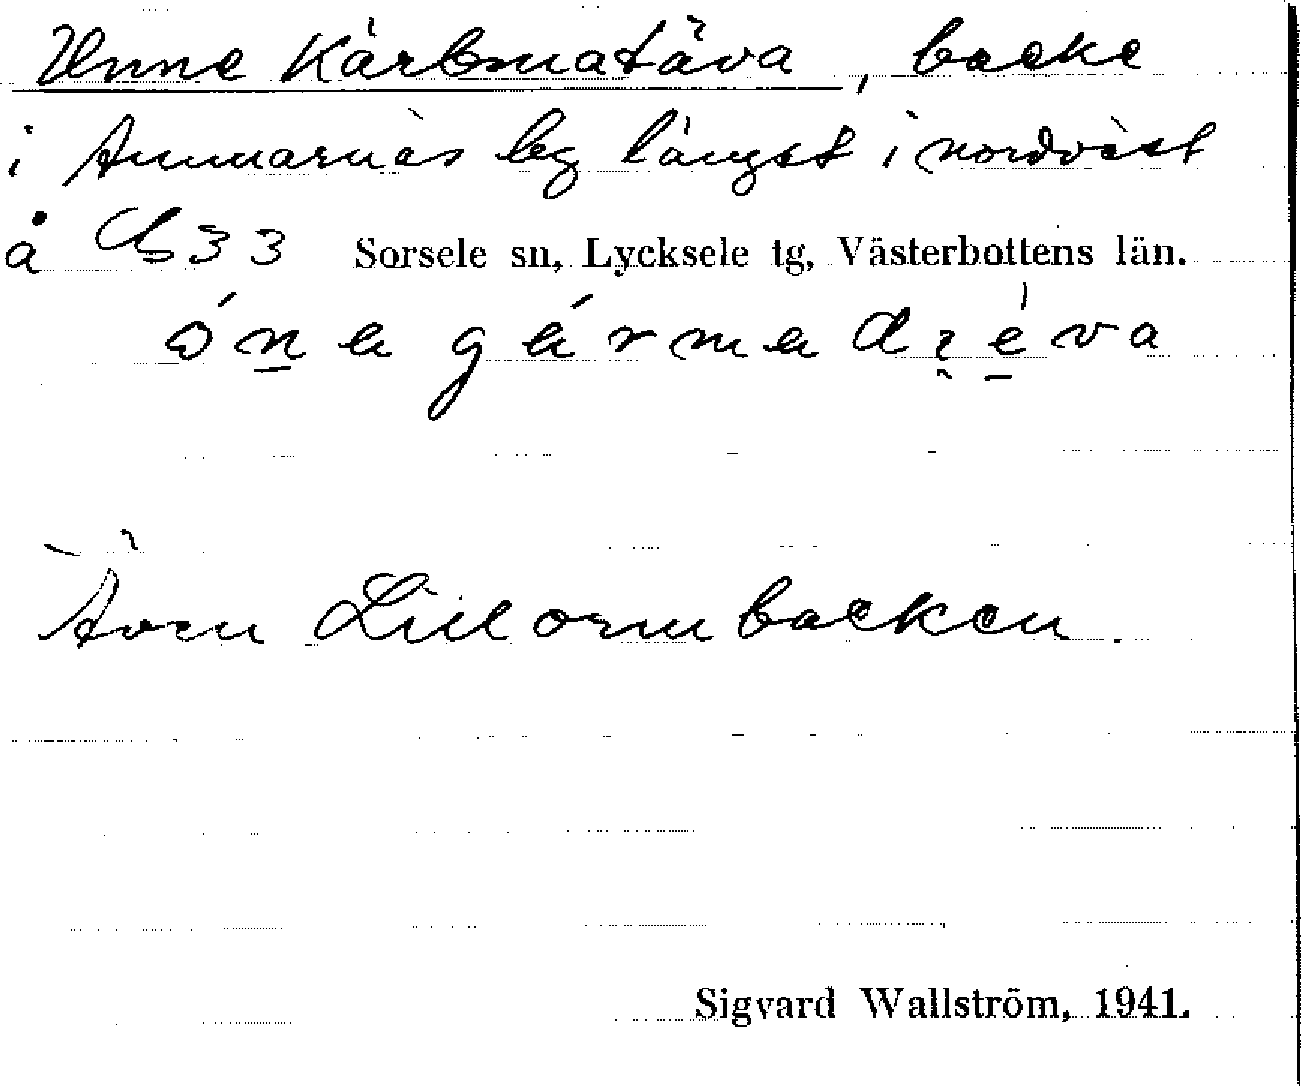 Unne Kärbmatäva, backe
i Ammarnäs by längst i nordväst
å Cb33 Sorsele sn, Lycksele tg, Västerbottens län.
Även Lillormbacken.
Sigvard Wallström, 1941.